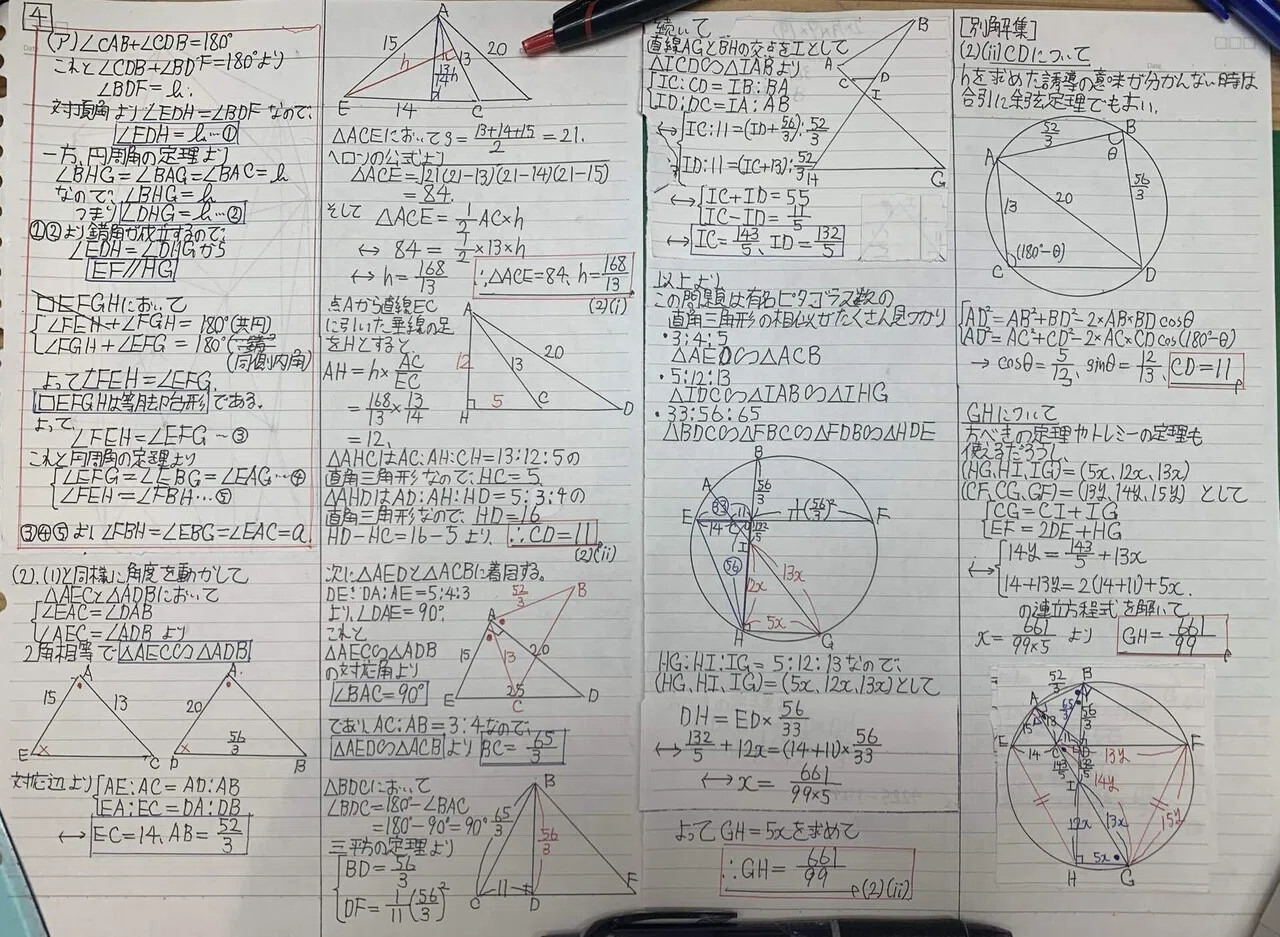 4
(ア) ∠CAB+∠CDB=180°
これと∠CDB+∠BDF=180°より
∠BDF=b.
対頂角より∠EDH=∠BDFなので、
∠EDH=b…①
一方、円周角の定理より
∠BHG=∠BAG=∠BAC=b
なので、∠BHG=b
つまり∠DHG=b…②
①②より錯角が成立するので、
∠EDH=∠DHGから
EF//HG
□EFGHにおいて
∠FEH+∠FGH=180°(共円)
∠FGH+∠EFG=180°
(同側内角)
よって∠FEH=∠EFG.
□EFGHは等脚台形である.
よって、
∠FEH=∠EFG…③
これと円周角の定理より
∠EFG=∠EBG=∠EAG…④
∠FEH=∠FBH…⑤
③④⑤より∠FBH=∠EBG=∠EAC=a
(2).(1)と同様に角度を動かして
△AECと△ADBにおいて
∠EAC=∠DAB
∠AEC=∠ADBより
2角相等で△AEC∽△ADB
A
15
13
E
×
C
A
20
×
D
56/3
B
対応辺より
AE:AC=AD:AB
EA:EC=DA:DB
↔ EC=14、AB=52/3
A
15
h
13
20
E
14
C
△ACEにおいてs=(13+14+15)/2=21.
ヘロンの公式より
△ACE=√21(21-13)(21-14)(21-15)
=84.
そして △ACE=1/2 AC×h
↔ 84=1/2×13×h
↔ h=168/13
∴△ACE=84、h=168/13
(2)(i)
点Aから直線EC
に引いた垂線の足
をHとすると
AH=h×AC/EC
=168/13×13/14
=12、
A
12
13
20
H
5
C
D
△AHCはAC:AH:CH=13:12:5の
直角三角形なので、HC=5.
△AHDはAD:AH:HD=5:3:4の
直角三角形なので、HD=16
HD-HC=16-5より、∴CD=11
(2)(ii)
次に△AEDと△ACBに着目する。
DE:DA:AE=5:4:3
より、∠DAE=90°.
これと
△AEC∽△ADB
の対応角より
∠BAC=90°
52/3
B
A
15
13
20
E
25
C
D
であり、AC:AB=3:4なので、
△AED∽△ACBより BC=65/3
△BDCにおいて
∠BDC=180°-∠BAC
=180°-90°=90°
三平方の定理より
BD=56/3
DF=1/11(56/3)²
B
65/3
56/3
C
11
D
F
続いて
直線AGとBHの交点をIとして
△ICD∽△IABより
IC:CD=IB:BA
ID:DC=IA:AB
↔ IC:11=(ID+56/3):52/3
ID:11=(IC+13):52/3
↔ IC+ID=55
IC-ID=11/5
↔ IC=143/5、ID=132/5
B
A
C
D
I
14
G
以上より
この問題は有名ピタゴラス数の
直角三角形の相似がたくさん見つかり
・3:4:5
△AED∽△ACB
・5:12:13
△IDC∽△IAB∽△IHG
・33:56:65
△BDC∽△FBC∽△FDB∽△HDE
B
A
56/3
33
11
1/11(56/3)²
E
14
C
F
132/5
I
56
12x
13x
5x
H
G
HG:HI:IG=5:12:13なので、
(HG、HI、IG)=(5x、12x、13x)として
DH=ED×56/33
↔ 132/5+12x=(14+11)×56/33
↔ x=661/(99×5)
よってGH=5xを求めて
∴GH=661/99
(2)(ii)
[別解集]
(2)(ii)CDについて
hを求めた誘導の意味が分かんない時は
強引に余弦定理でもよい.
52/3
B
A
θ
13
20
56/3
(180°-θ)
C
D
AD²=AB²+BD²-2×AB×BDcosθ
AD²=AC²+CD²-2×AC×CDcos(180°-θ)
→ cosθ=5/13、sinθ=12/13、CD=11
GHについて
方べきの定理やトレミーの定理も
使えるだろうし、
(HG、HI、IG)=(5x、12x、13x)
(CF、CG、GF)=(13y、14y、15y) として
CG=CI+IG
EF=2DE+HG
↔ 14y=143/5+13x
14+13y=2(14+11)+5x.
の連立方程式を解いて
x=661/(99×5) より GH=661/99
52/3
B
A
15
13
65/3
56/3
E
14
C
11
D
13y
F
143/5
132/5
I
14y
12x
13x
15y
5x
H
G